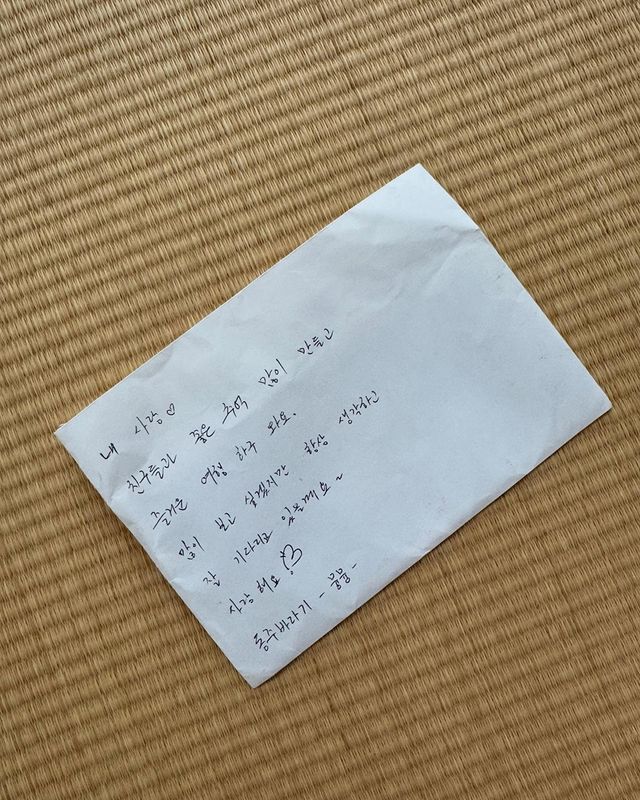 내 사랑♡
친구들과 좋은 추억 많이 만들고
즐거운 여행 하구 와요.
많이 보고 싶겠지만 항상 생각하고
잘 기다리고 있을께요~
사랑해요!
동주바라기 - 뿡뿡 -